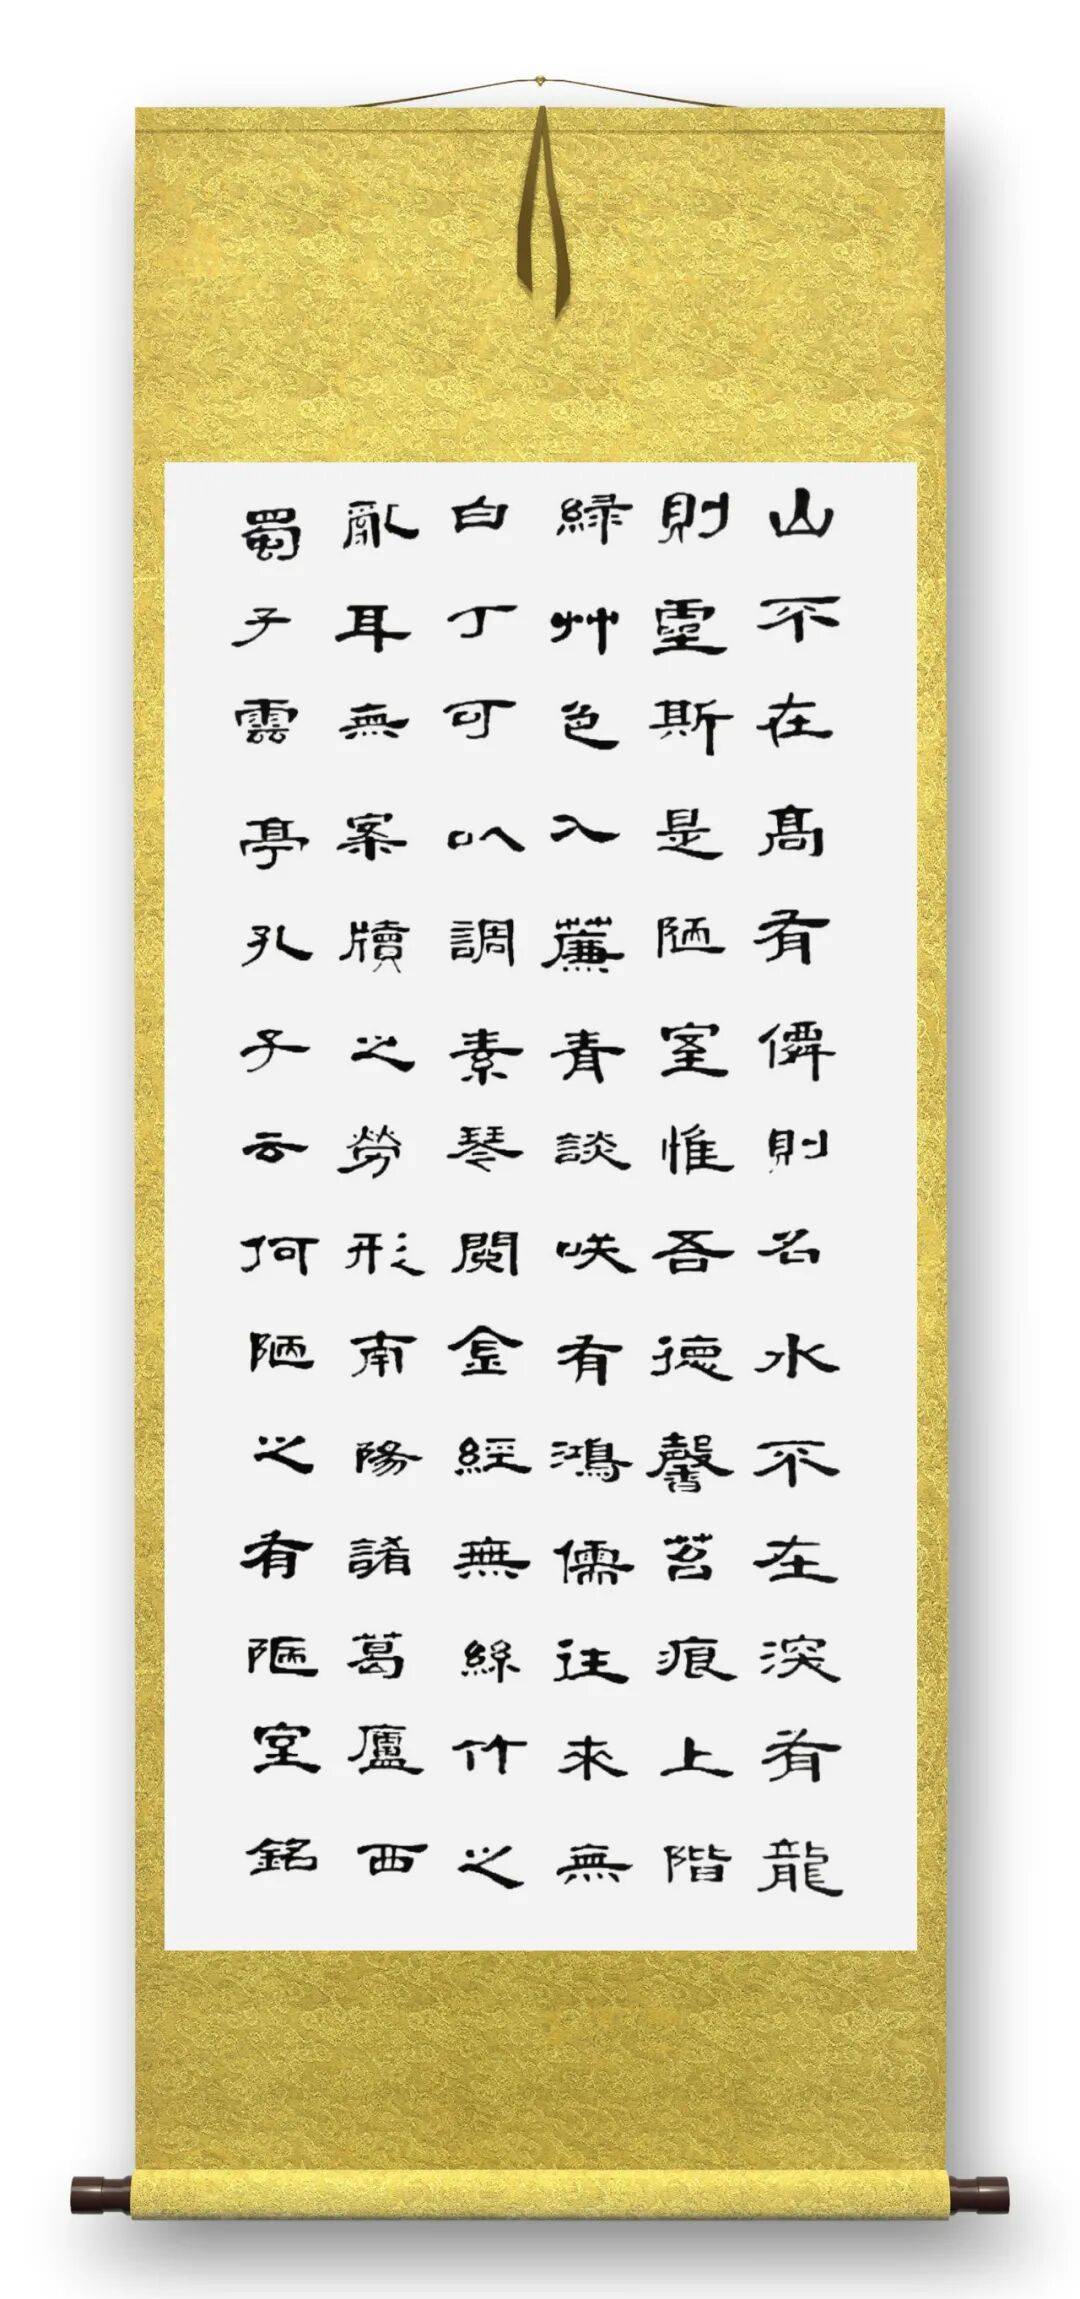 山不在高有僊則名水不在深有龍
則靈斯是陋室惟吾德馨苔痕上階
綠艸色入薕青談咲有鴻儒往來無
白丁可以調素琴閱金經無絲竹之
亂耳無案牘之勞形南陽諸葛廬西
蜀子雲亭孔子云何陋之有陋室銘